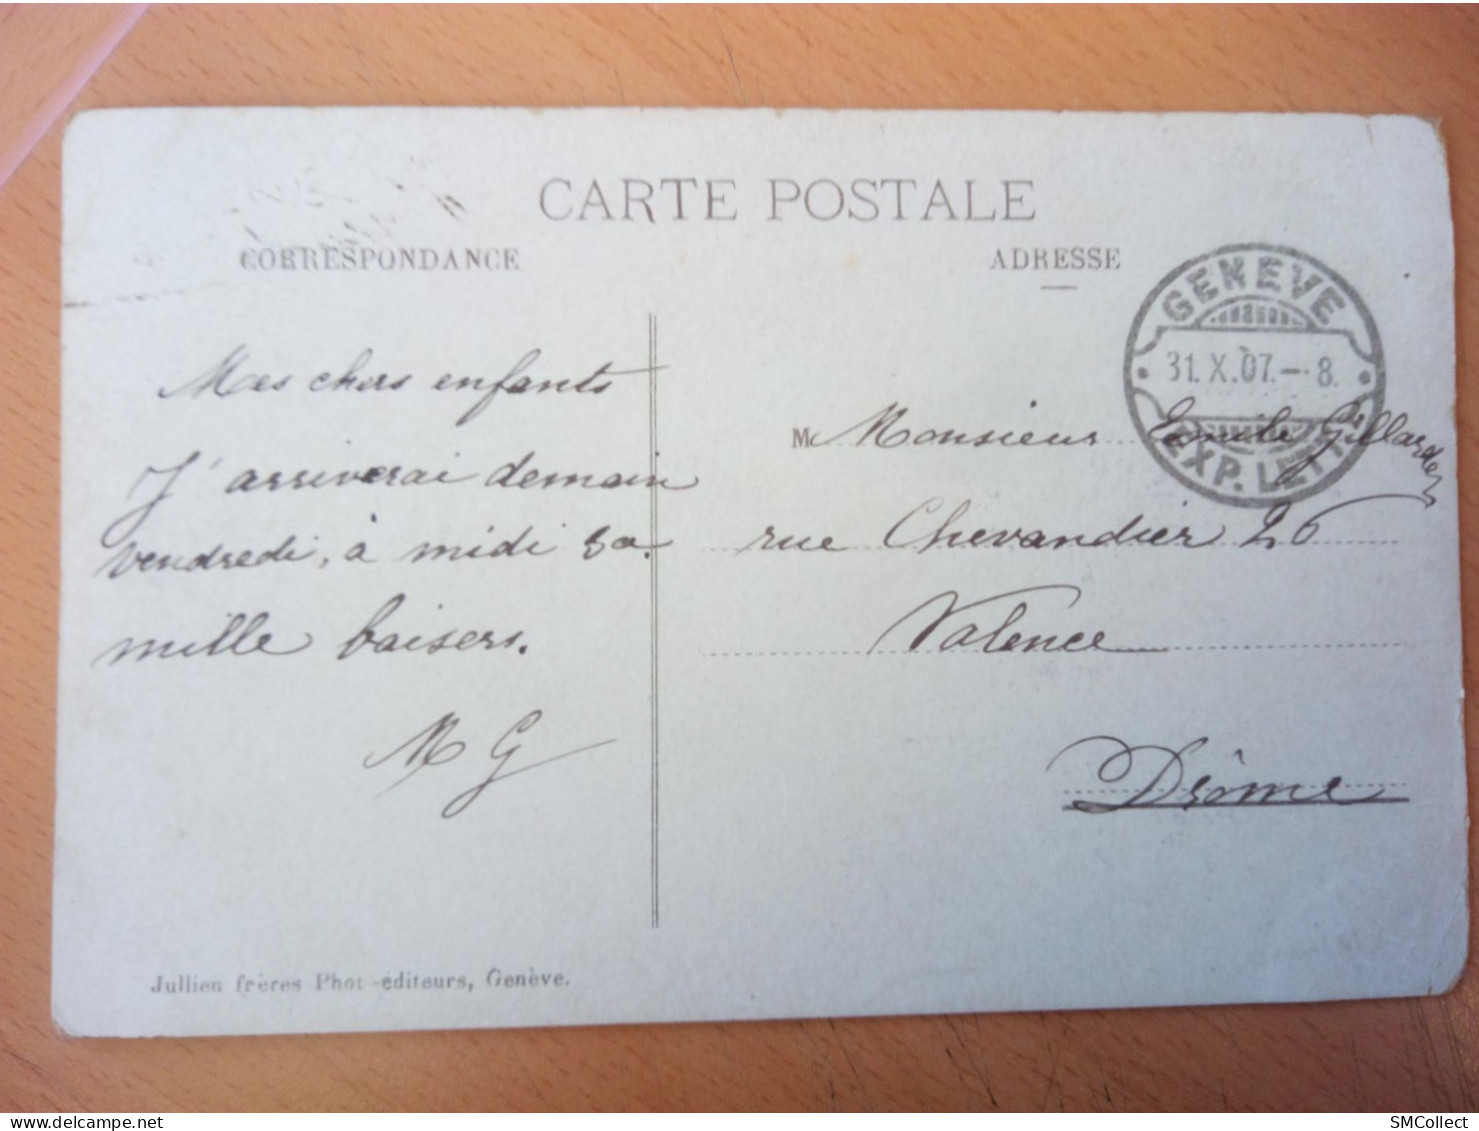 CARTE POSTALE
CORRESPONDANCE
ADRESSE
GENEVE
31. X. 07. – 8.
EXP. LETT.
Mes chers enfants
J'arriverai demain
vendredi, à midi 50.
mille baisers.
M G
M Monsieur Emile Gillarde
rue Chevandier 26
Valence
Drôme
Jullien frères Phot-éditeurs, Genève.
SMCollect